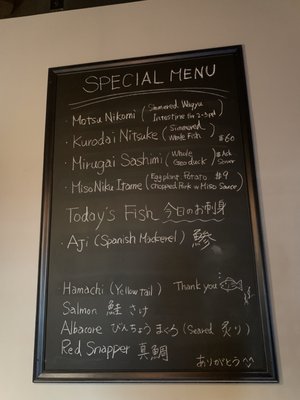 SPECIAL MENU
· Motsu Nikomi (Simmered Wagyu Intestine for 2-3ppl)
· Kurodai Nitsuke (Simmered Whole Fish) $60
· Mirugai Sashimi (Whole Geoduck) $ Ask Server
· Miso Niku Itame (Eggplant Potato chopped Pork w Miso Sauce) $9
Today's Fish 今日のお刺身
· Aji (Spanish Mackerel) 鰺
Hamachi (Yellow Tail) Thank you
Salmon 鮭 さけ
Albacore びんちょうまぐろ (Seared 炙り)
Red Snapper 真鯛
ありがとう